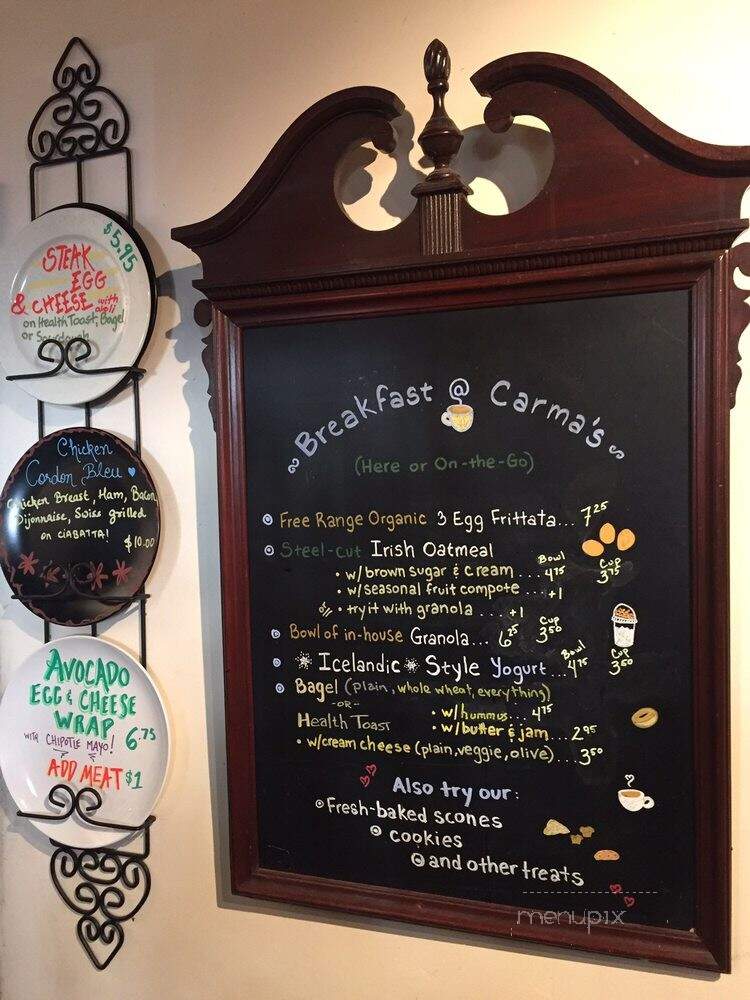 $5.95
STEAK
EGG
& CHEESE with aioli
on Health Toast, Bagel
or Sourdough
Chicken
Cordon Bleu
Chicken Breast, Ham, Bacon
Dijonnaise, Swiss grilled
on CIABATTA!
$10.00
AVOCADO
EGG & CHEESE
WRAP
WITH CHIPOTLE MAYO! 6.75
ADD MEAT $1
Breakfast @ Carma's
(Here or On-the-Go)
Free Range Organic 3 Egg Frittata... 7.25
Steel-cut Irish Oatmeal
Bowl Cup
• w/brown sugar & cream .... 4.75 3.75
• w/seasonal fruit compote ... +1
• try it with granola .... +1
Bowl of in-house Granola... 6.25 Cup 3.50
Icelandic Style Yogurt... Bowl 4.75 Cup 3.50
Bagel (plain, whole wheat, everything)
-OR-
Health Toast
• w/hummus... 4.75
• w/butter & jam.... 2.95
• w/cream cheese (plain, veggie, olive).... 3.50
Also try our:
Fresh-baked scones
cookies
and other treats
menupix